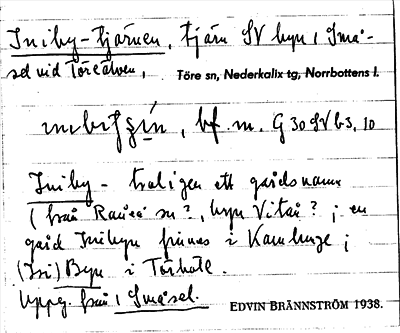 Iniby-tjärnen, tjärn SV byn i Små-
sel vid Töreälven,
Töre sn, Nederkalix tg, Norrbottens l.
bf. m. G 30 SV b3, 10
Iniby - troligen ett gårdsnamn
(från Råneå sn?, byn Vitå? ; en
gård Inibyn finns i Kamlunge ;
(Isi) Byn i Törböle.
Uppg. från 1 Småsel. EDVIN BRÄNNSTRÖM 1938.